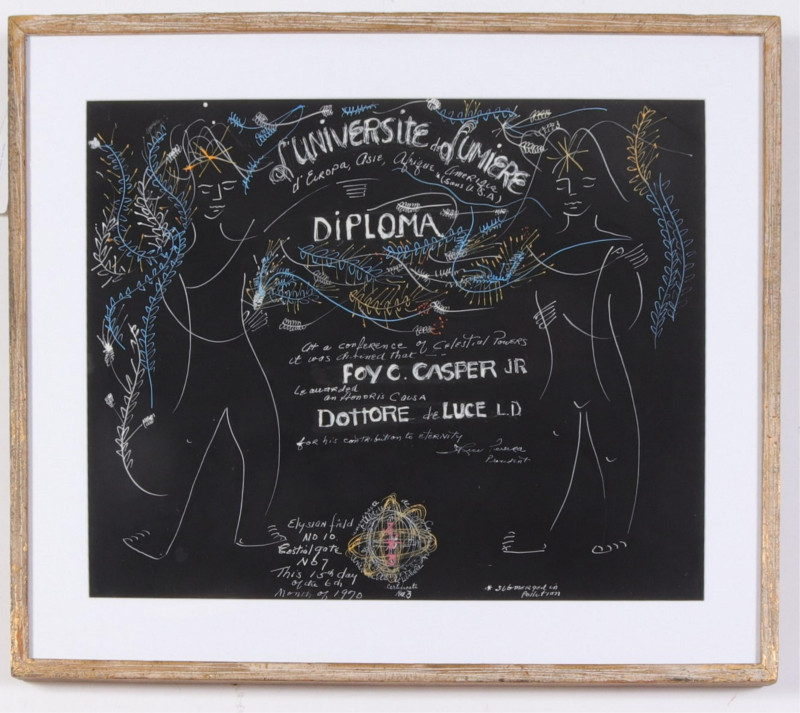 L'UNIVERSITE de LUMIÈRE
d'Europa, Asie, Afrique, Amerique
*(sans U.S.A)
DiPLOMA
At a conference of Celestial Powers
it was defined that
FOY C. CASPER JR
be awarded
an HONORIS CAUSA
DOTTORE de LUCE L.D.
for his contribution to ETERNITY
President
Elysian field
NO 10
gate
NO 7
This 15th day
of the 6th
Month of 1970
No 3
* submerged in
Pollution